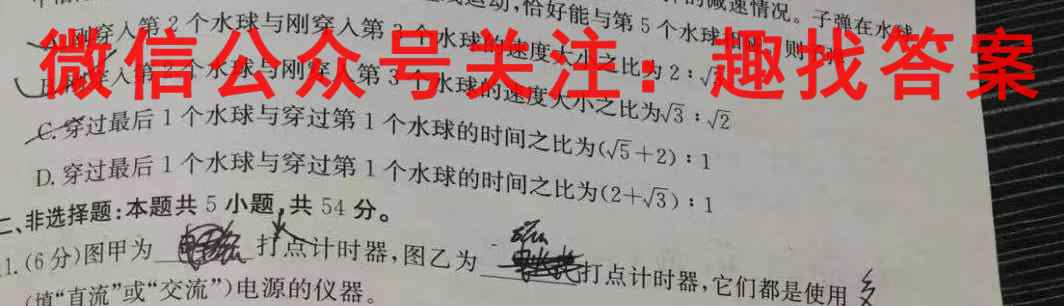 的减速情况。子弹在水球
运动,恰好能与第5个水球
刚穿入第2个水球与刚穿入第3个水球的速度大小之比为2:√
微信公众号关注:趣找答案
穿入第2个水球与刚穿入第3个水球的速度大小之比为√3:√2
C.穿过最后1个水球与穿过第1个水球的时间之比为(√5+2):1
D.穿过最后1个水球与穿过第1个水球的时间之比为(2+√3):1
二、非选择题:本题共5小题,共54分。
1.(6分)图甲为 打点计时器,图乙为 打点计时器,它们都是使用
(填“直流”或“交流”)电源的仪器。